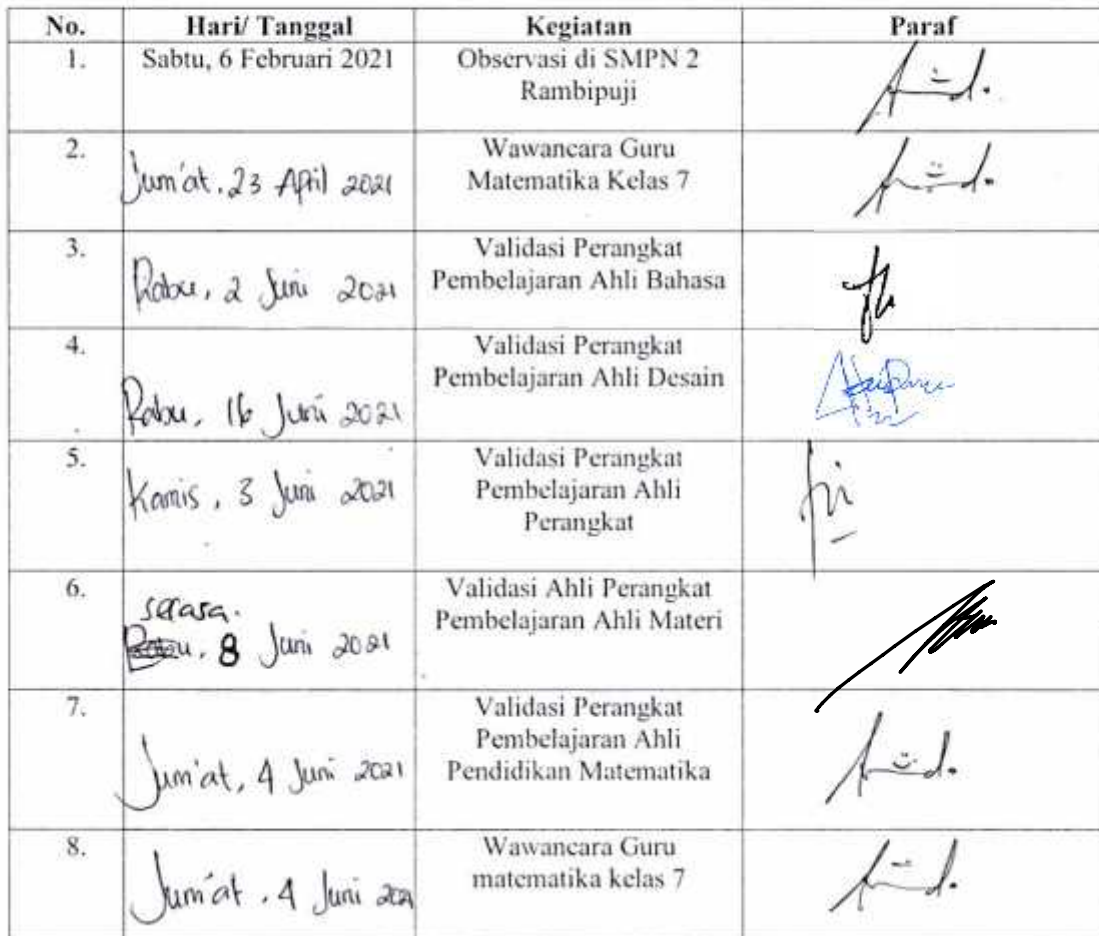 No. Hari/ Tanggal Kegiatan Paraf
1. Sabtu, 6 Februari 2021 Observasi di SMPN 2
Rambipuji
2. Jum'at, 23 April 2021 Wawancara Guru
Matematika Kelas 7
3. Rabu, 2 Juni 2021 Validasi Perangkat
Pembelajaran Ahli Bahasa
4. Rabu, 16 Juni 2021 Validasi Perangkat
Pembelajaran Ahli Desain
5. Kamis, 3 Juni 2021 Validasi Perangkat
Pembelajaran Ahli
Perangkat
6. selasa. Validasi Ahli Perangkat
Rabu, 8 Juni 2021 Pembelajaran Ahli Materi
7. Jum'at, 4 Juni 2021 Validasi Perangkat
Pembelajaran Ahli
Pendidikan Matematika
8. Jum'at, 4 Juni 2021 Wawancara Guru
matematika kelas 7